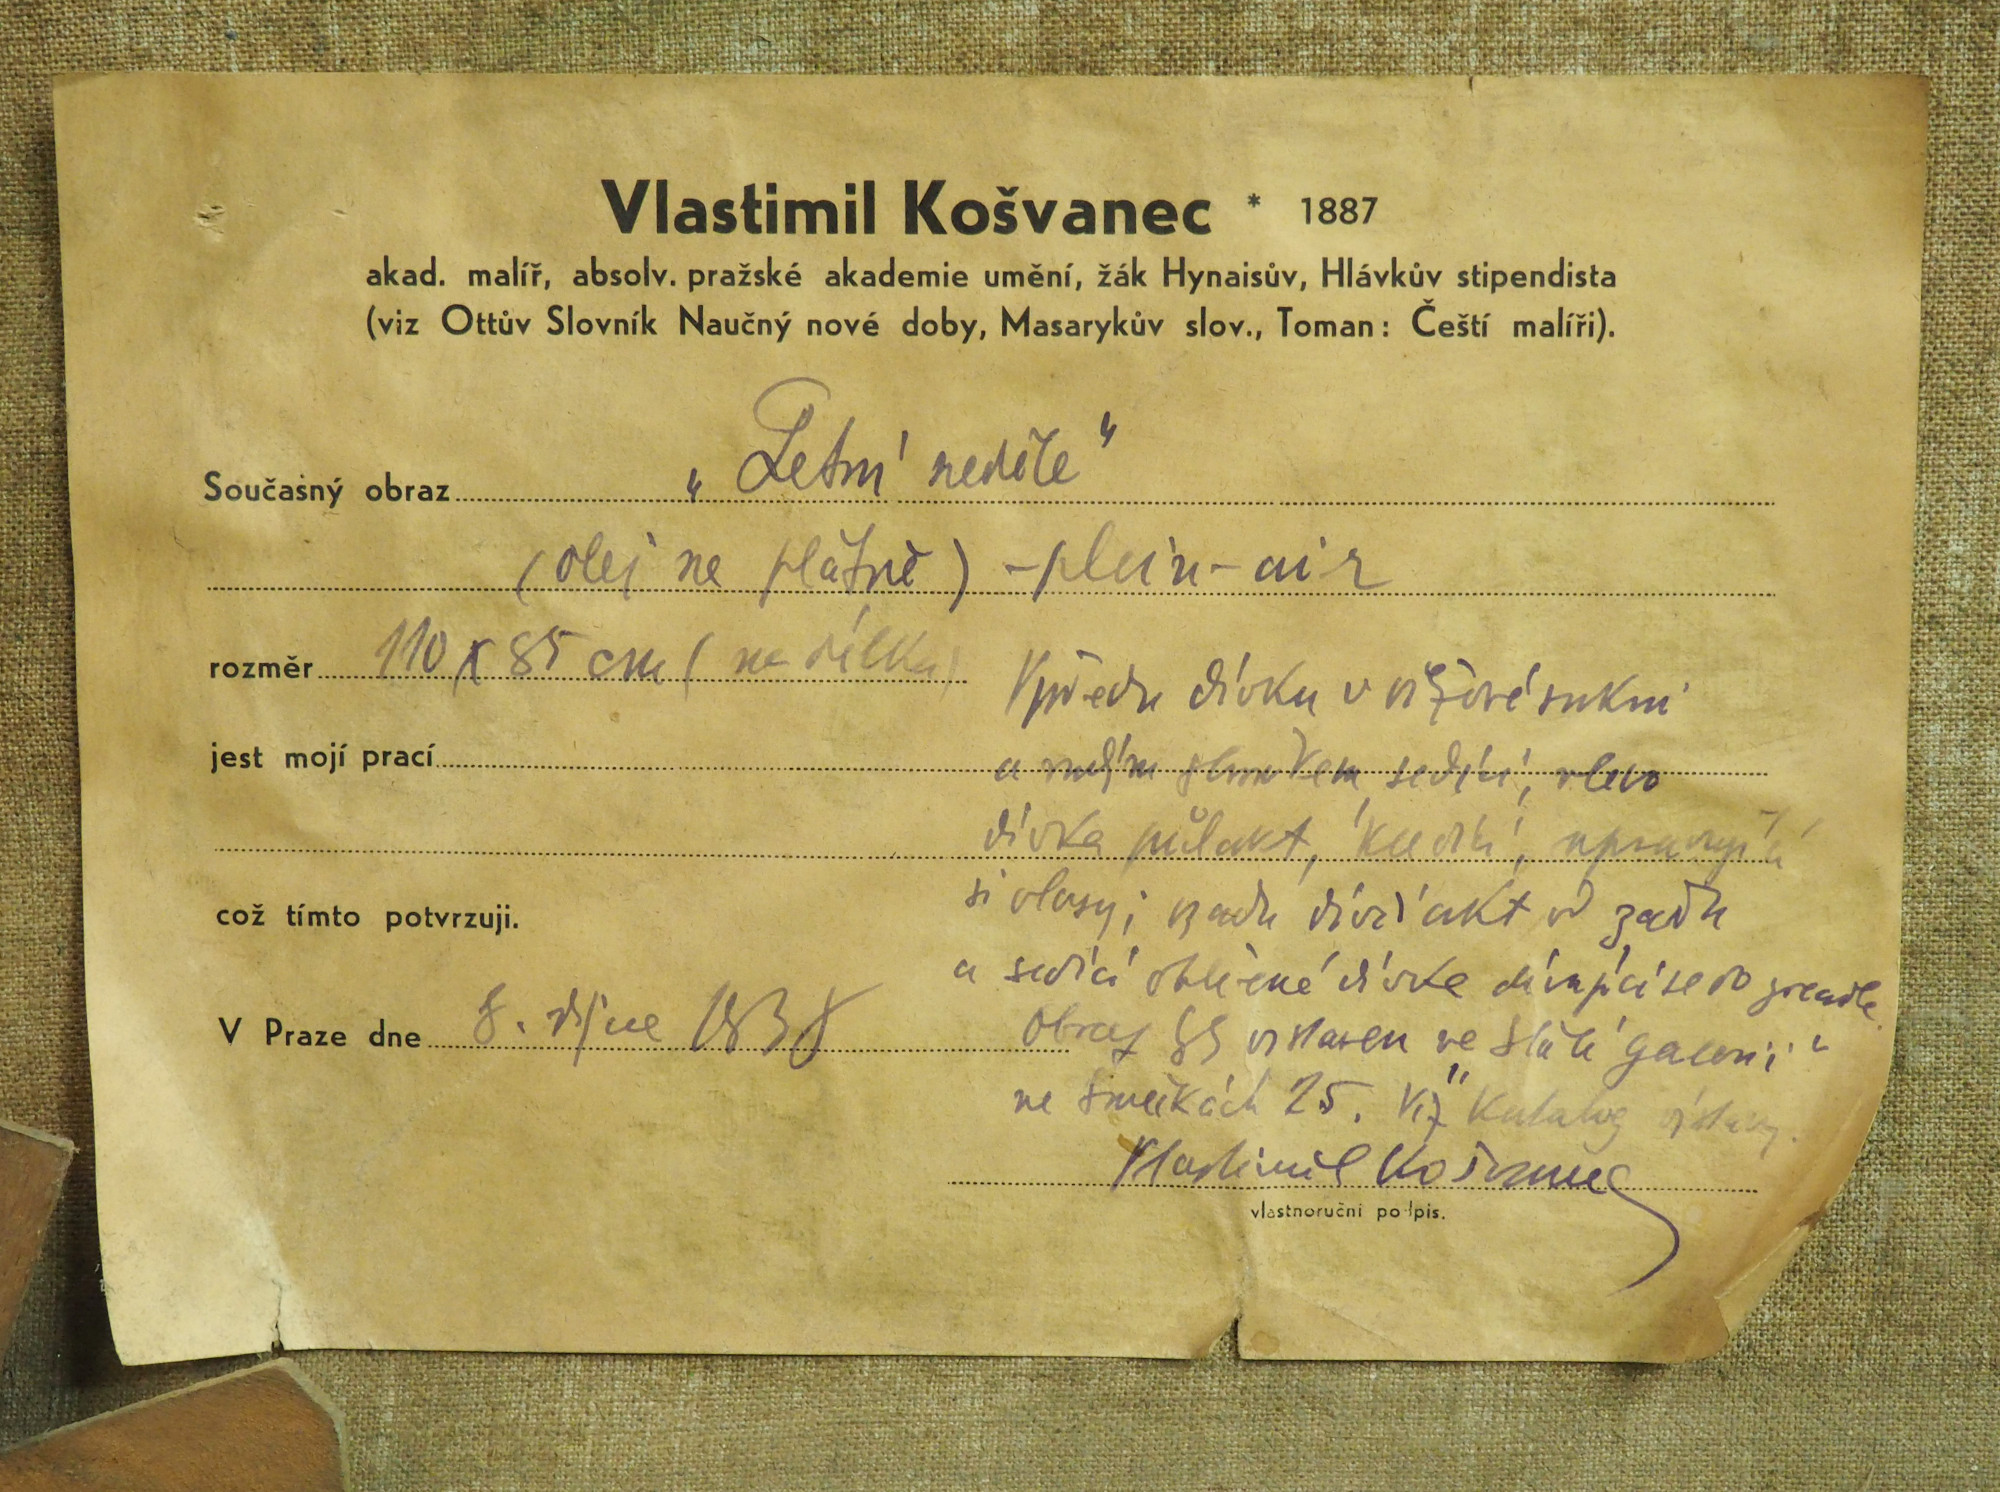 Vlastimil Košvanec * 1887
akad. malíř, absolv. pražské akademie umění, žák Hynaisův, Hlávkův stipendista
(viz Ottův Slovník Naučný nové doby, Masarykův slov., Toman: Čeští malíři).
Současný obraz „Letní neděle“
(olej na plátně) - plein-air
rozměr 110 x 85 cm (na délku)
Vpředu dívka v růžové sukni
jest mojí prací
a sedící, vlevo
dívka půlakt, klečící, upravující
si vlasy; vzadu dívčí akt od zadu
což tímto potvrzuji.
a sedící oblečená dívka dívající se do zrcadla.
V Praze dne 8. října 1938
Obraz byl vystaven ve Zlaté galerii“
ve Smečkách 25. Viz katalog výstavy.
Vlastimil Košvanec
vlastnoruční podpis.